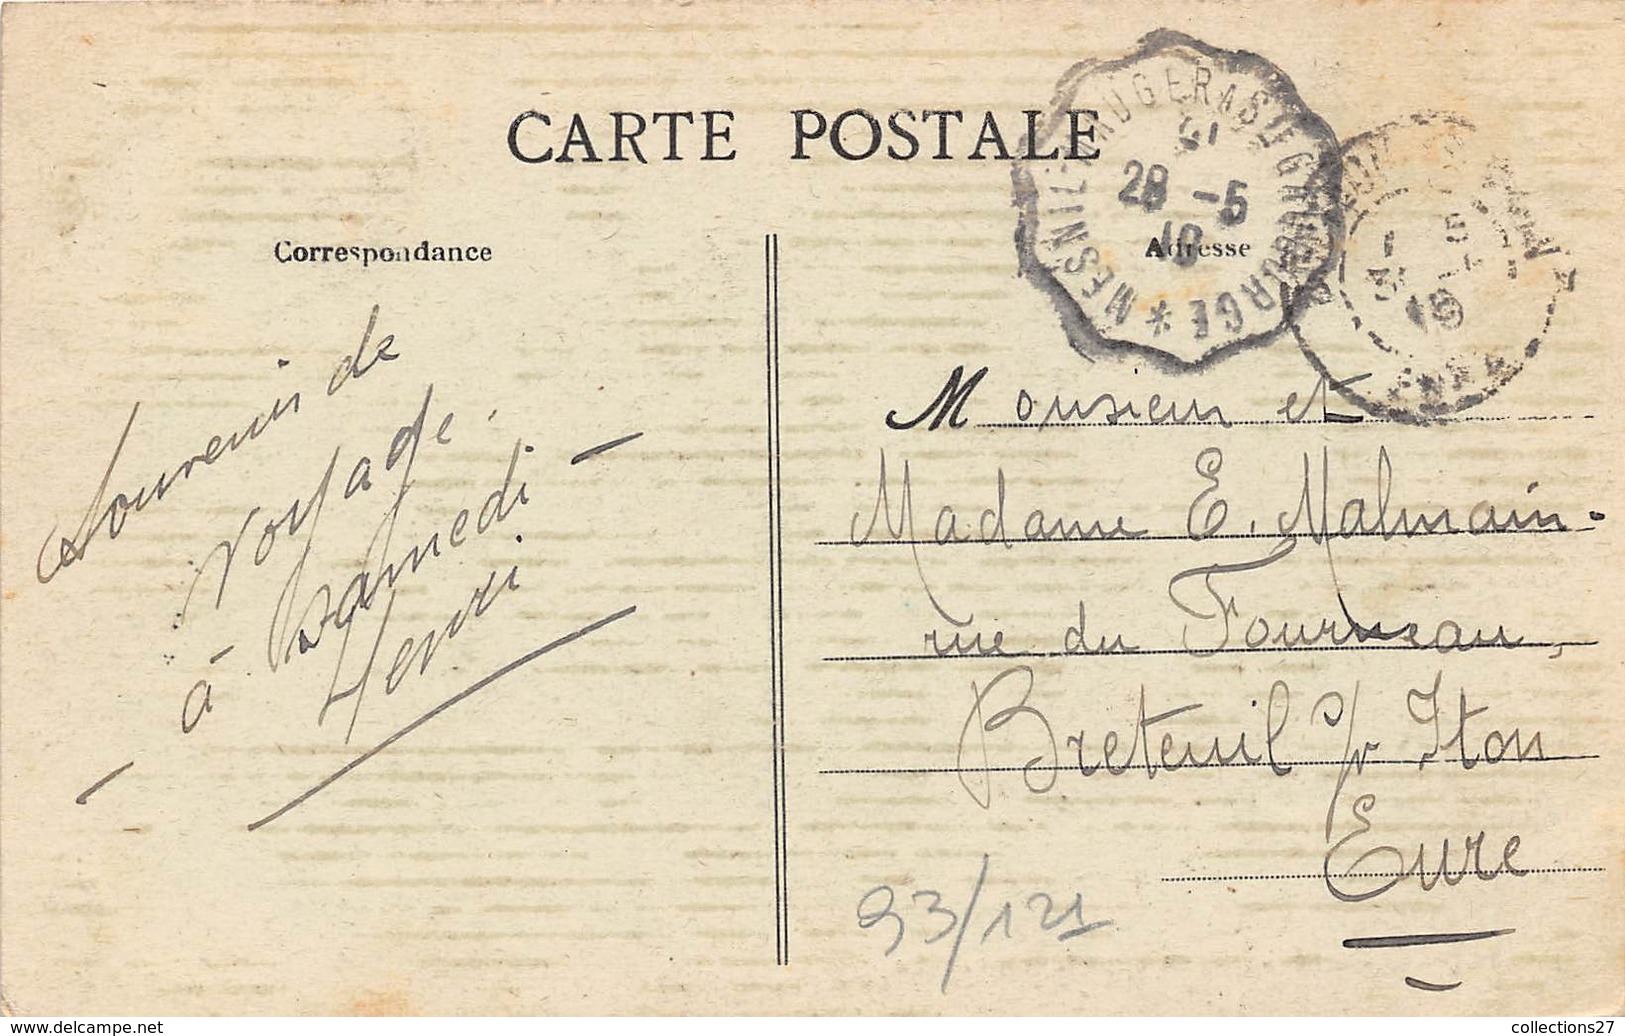 CARTE POSTALE
Correspondance
Adresse
MESNIL-MAUGER A Ste GAUBURGE *
28 -5
10
Souvenir de
voyage.
à Samedi -
Henri
Monsieur et
Madame E. Malmain.
rue du Fourneau,
Breteuil s/r Iton
Eure
93/121
www.delcampe.net
collections27